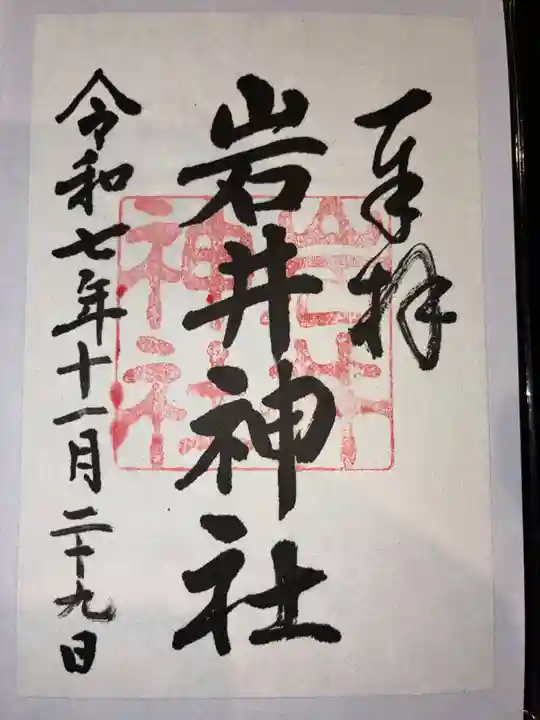 奉拝
岩井神社
岩井
神社
令和七年十一月二十九日